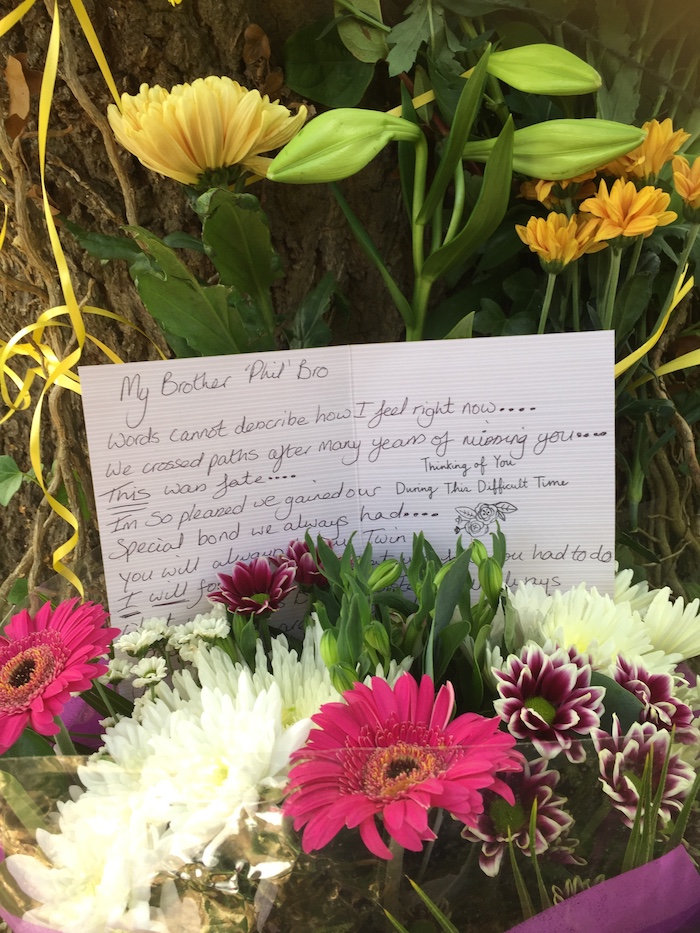 My Brother 'Phil' Bro
Words cannot describe how I feel right now....
We crossed paths after many years of missing you....
This was fate....
Thinking of You
I'm so pleased we gained our
During This Difficult Time
Special bond we always had....
You will always Twin
I will you had to do